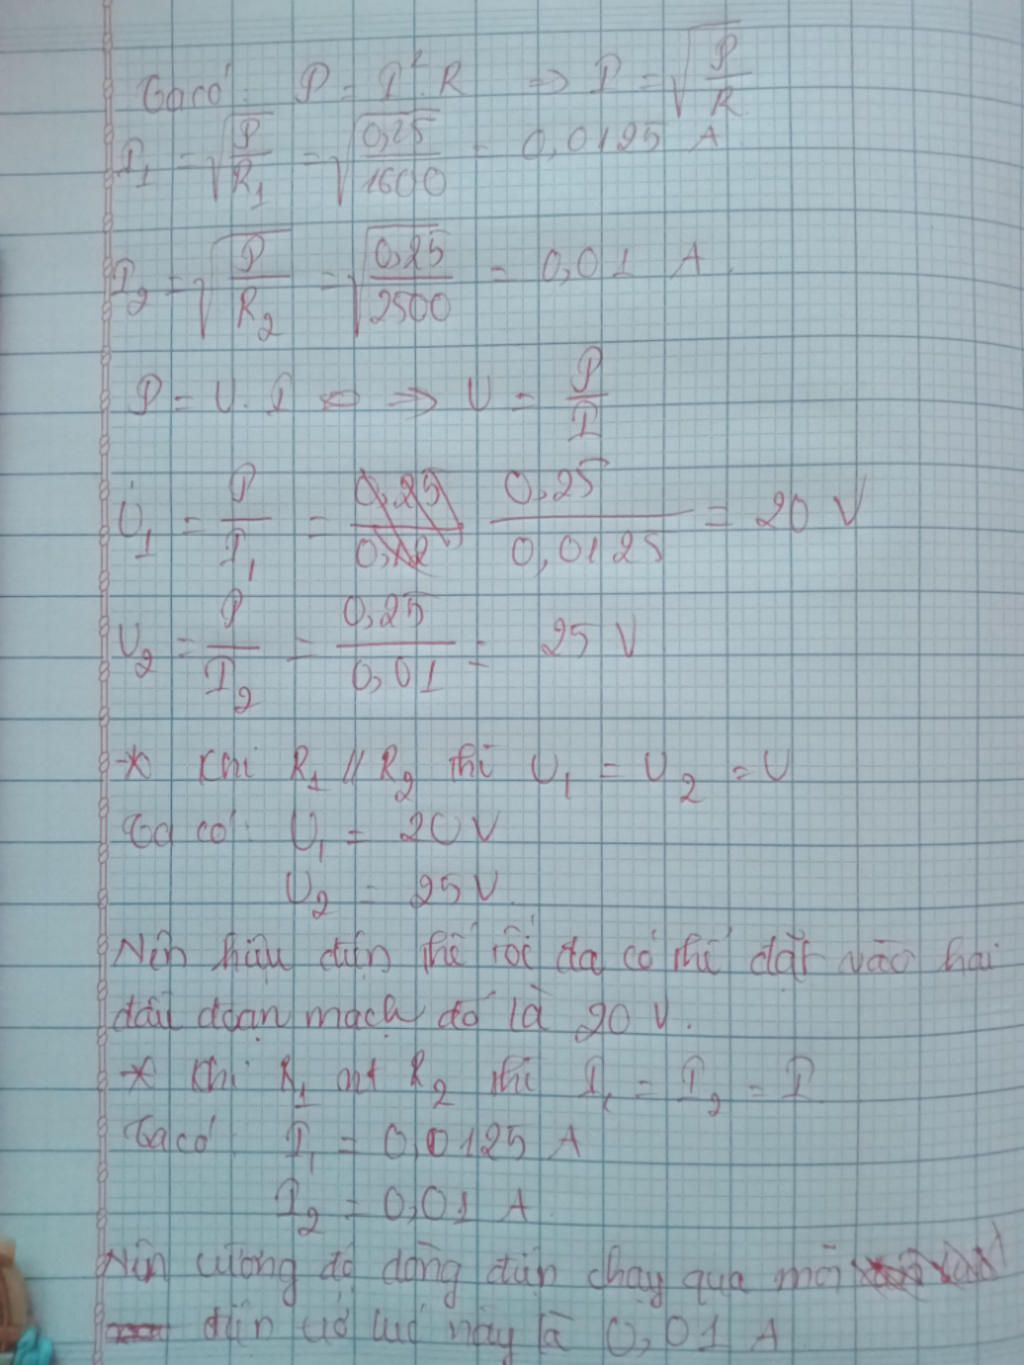 Ta có: P = I². R ⇒ I = √(P/R)
I₁ = √(P/R₁) = √(0,25/1600) = 0,0125 A
I₂ = √(P/R₂) = √(0,25/2500) = 0,01 A
P = U. I ⇔ ⇒ U = P/I
U₁ = P/I₁ = 0,25/0,0125 = 20 V
U₂ = P/I₂ = 0,25/0,01 = 25 V
* Khi R₁ // R₂ thì U₁ = U₂ = U
Ta có: U₁ = 20V
U₂ = 25V
Nên hiệu điện thế tối đa có thể đặt vào hai
đầu đoạn mạch đó là 20 V.
* Khi R₁ nt R₂ thì I₁ = I₂ = I
Ta có: I₁ = 0,0125 A
I₂ = 0,01 A
Nên cường độ dòng điện chạy qua mỗi
điện trở lúc này là 0,01 A